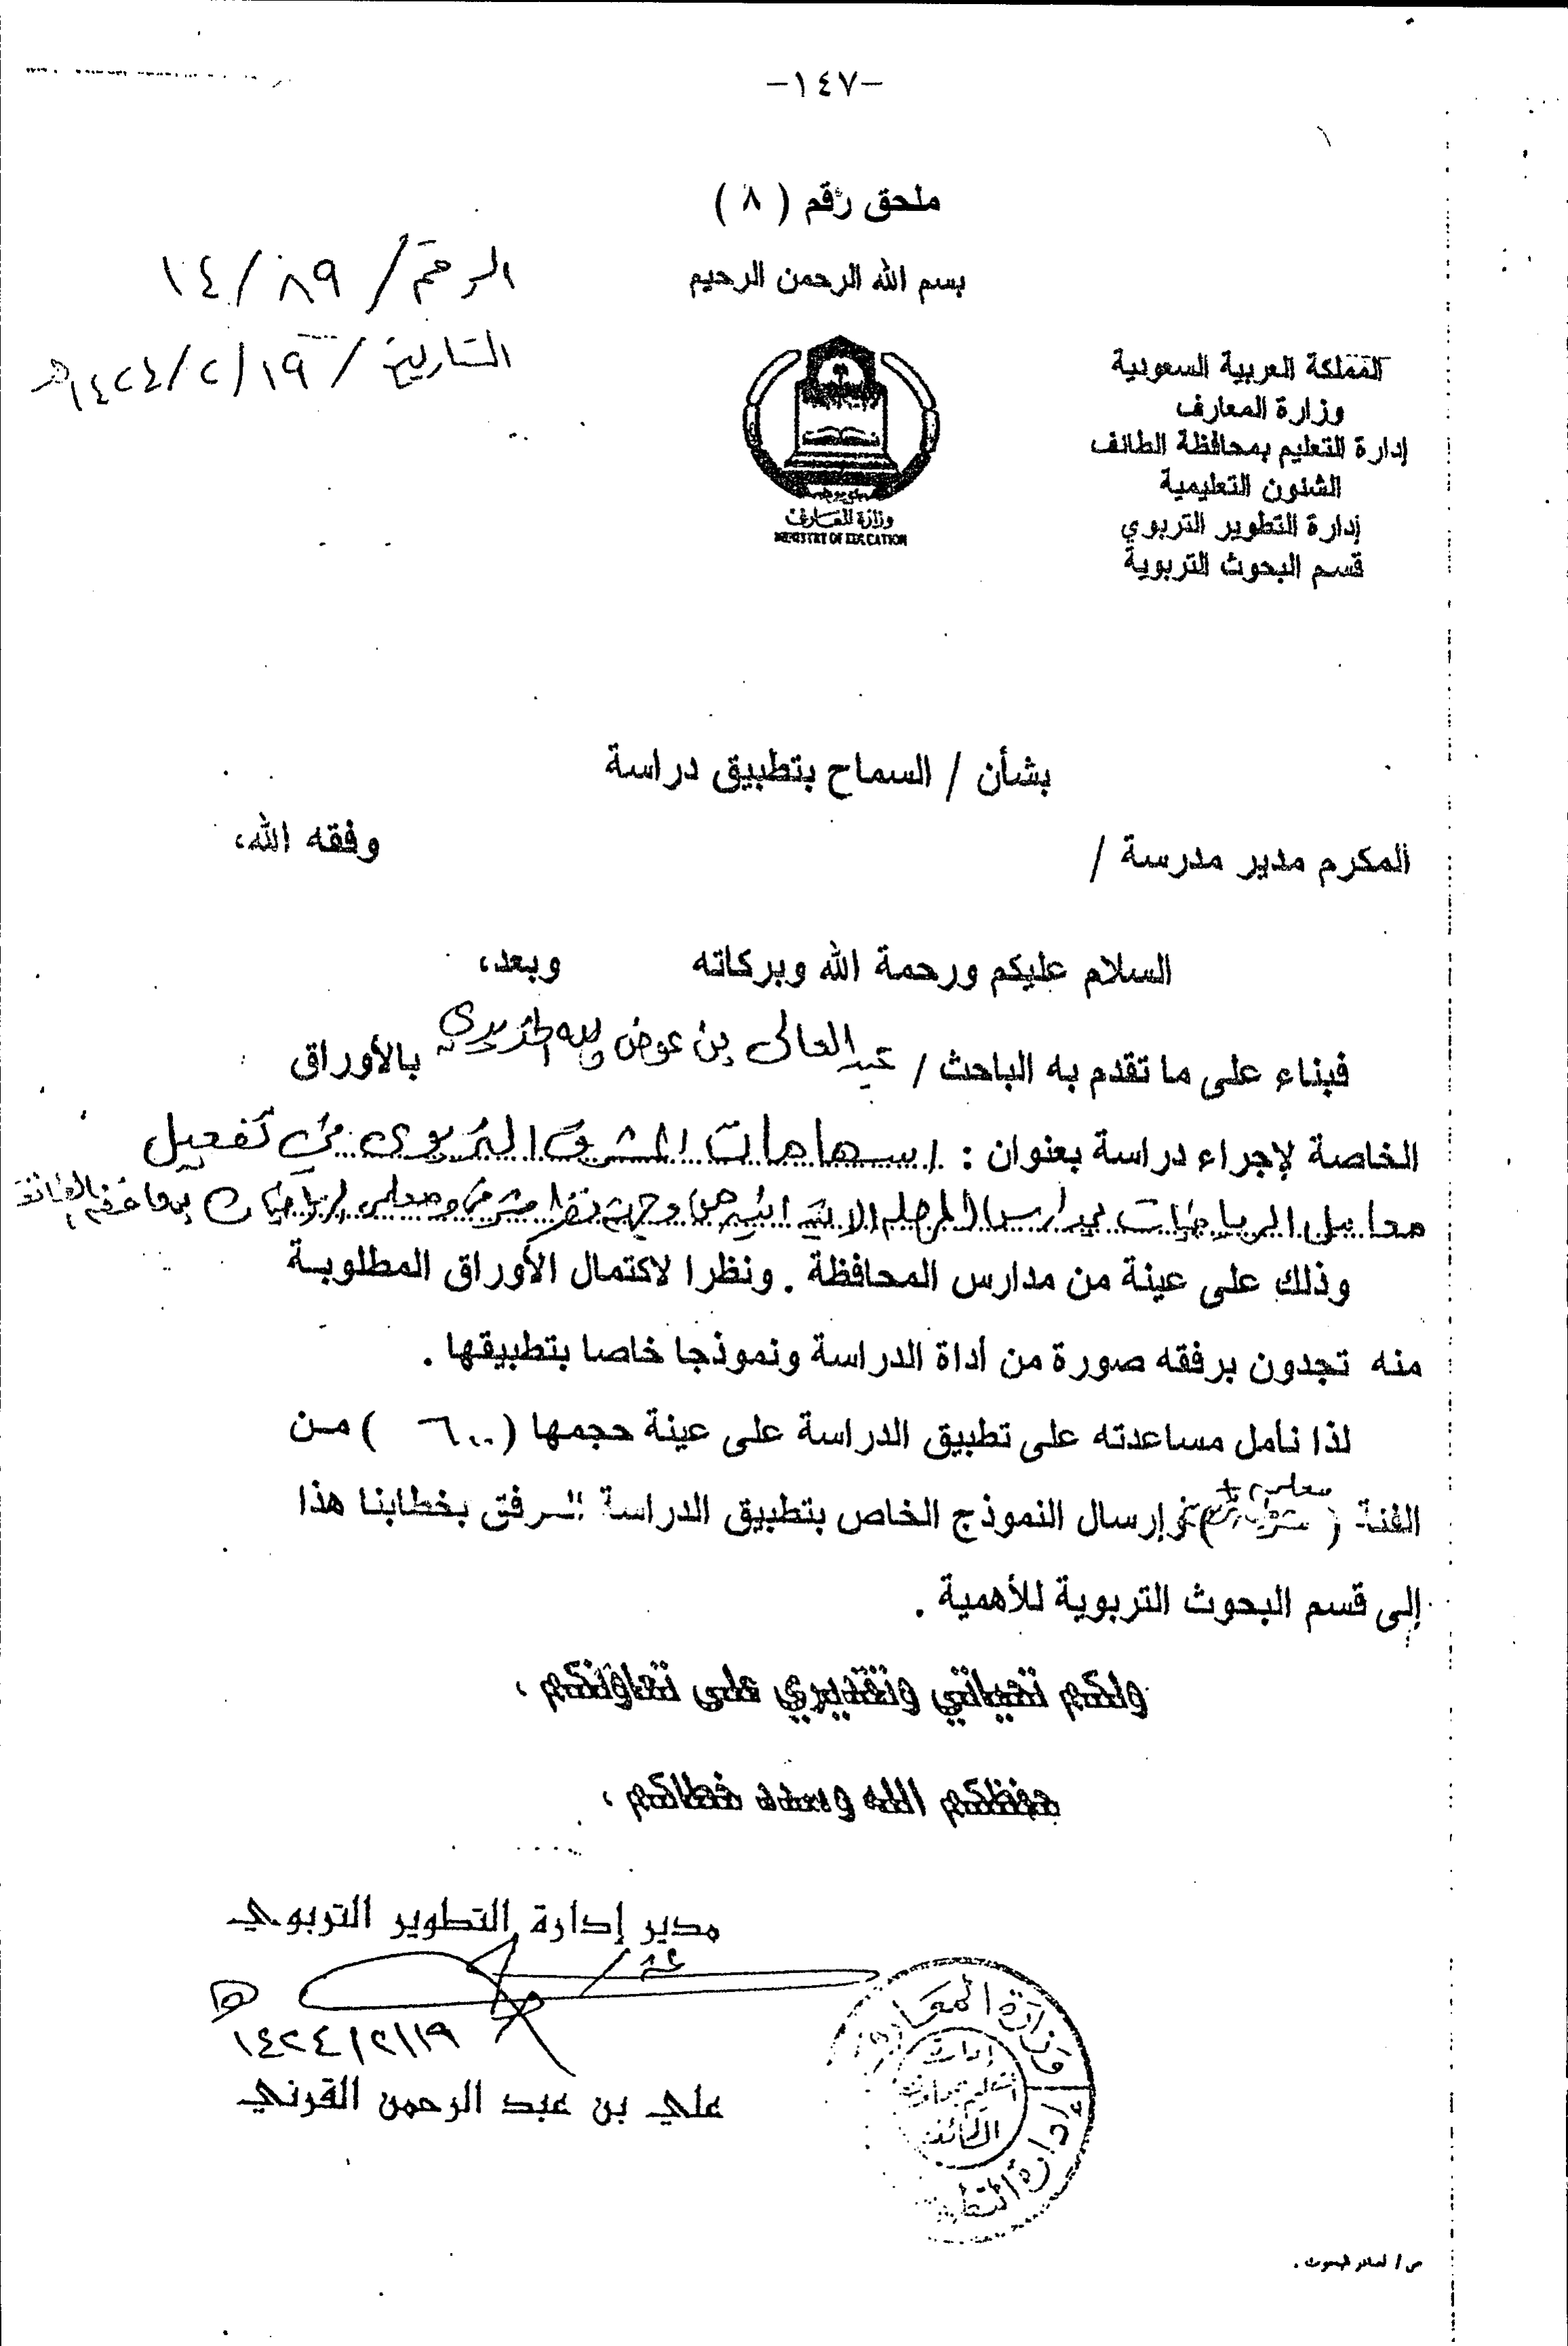 -١٤٧-
ملحق رقم ( ٨ )
بسم الله الرحمن الرحيم
الرقم / ٨٩ / ١٤
التاريخ / ١٩ / ٢ / ١٤٢٤هـ
المملكة العربية السعودية
وزارة المعارف
إدارة التعليم بمحافظة الطائف
الشئون التعليمية
إدارة التطوير التربوي
قسم البحوث التربوية
وزارة المعارف
MINISTRY OF EDUCATION
بشأن / السماح بتطبيق دراسة
المكرم مدير مدرسة / وفقه الله،
السلام عليكم ورحمة الله وبركاته وبعد،
فبناء على ما تقدم به الباحث / عبد العالي بن عوض بالأوراق
الخاصة لإجراء دراسة بعنوان : إسهامات المشرف التربوي في تفعيل
معامل الرياضيات بمدارس المرحلة الابتدائية من وجهة نظر مشرفي ومعلمي الرياضيات بمحافظة الطائف
وذلك على عينة من مدارس المحافظة . ونظرا لاكتمال الأوراق المطلوبة
منه تجدون برفقه صورة من أداة الدراسة ونموذجا خاصا بتطبيقها .
لذا نأمل مساعدته على تطبيق الدراسة على عينة حجمها ( ٦٠٠ ) من
الفئة ( معلمين + ) وإرسال النموذج الخاص بتطبيق الدراسة المرفق بخطابنا هذا
إلى قسم البحوث التربوية للأهمية .
ولكم تحياتي وتقديري على تعاونكم ،
حفظكم الله وسدد خطاكم ،
مدير إدارة التطوير التربوي
١٤٢٤/٢/١٩ هـ
علي بن عبد الرحمن القرني
وزارة المعارف
إدارة
الطائف